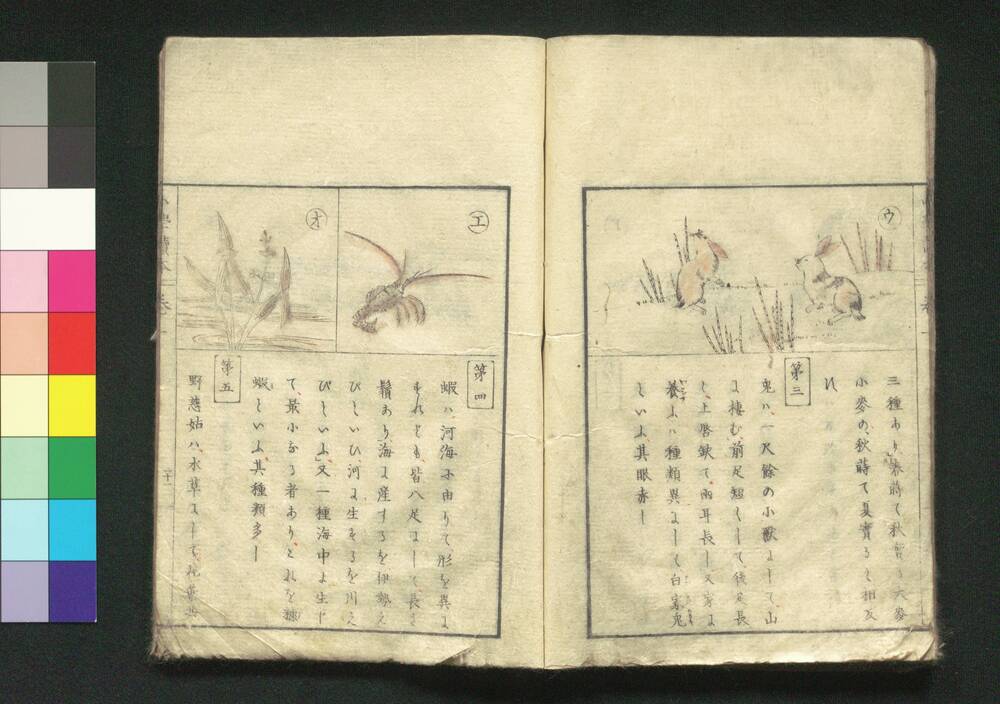 ウ
三種あり、春蒔て秋實る大麥
小麥の、秋蒔て夏實ると相反
れ
第三
兎ハ、一尺餘の小獸にして、山
に棲む、前足短くして、後足長
し、上唇缺て、兩耳長し又家に
養ふハ種類異にして白家兎
といふ其眼赤し
エ
オ
第四
蝦ハ、河海に由りて形を異に
すれども、皆八足にして、長き
鬚あり、海に産するを伊勢え
びといひ、河に生ずるを川え
びといふ、又一種海中に生じ
て、最小なる者あり、これを糠
蝦といふ、其種類多し
第五
野慈姑ハ、水草にして、